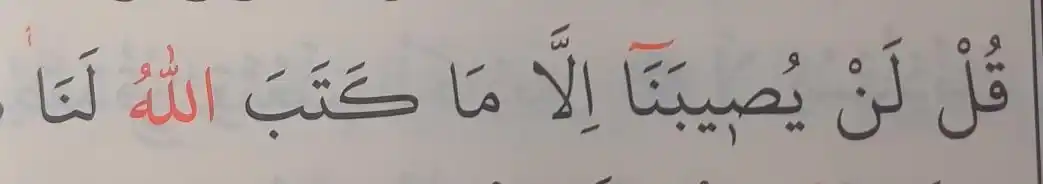 قُلْ لَنْ يُصٖيبَنَٓا اِلَّا مَا كَتَبَ اللّٰهُ لَنَا